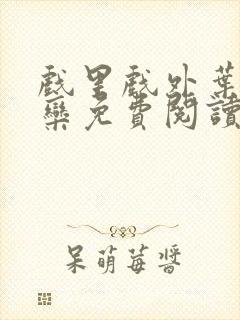 戲里戲外葉
欒免費閱讀
呆萌莓醬